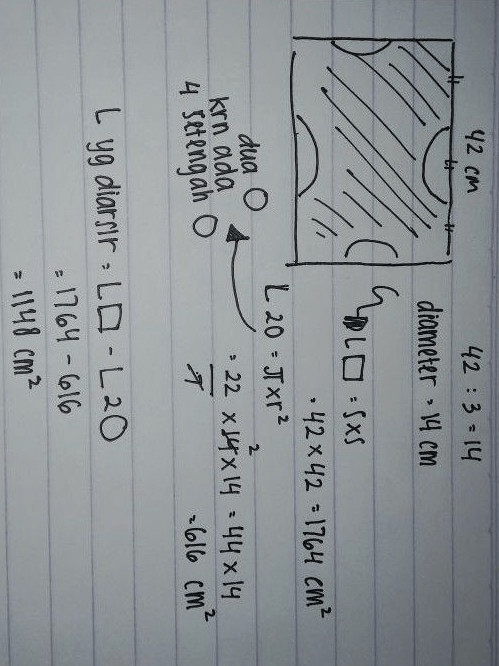 42 cm
42 : 3 = 14
diameter = 14 cm
L □ = s x s
= 42 x 42 = 1764 cm²
L 2O = π x r²
= 22/7 x 14² x 14 = 44 x 14
= 616 cm²
dua O
krn ada
4 setengah O
L yg diarsir = L □ - L 2O
= 1764 - 616
= 1148 cm²